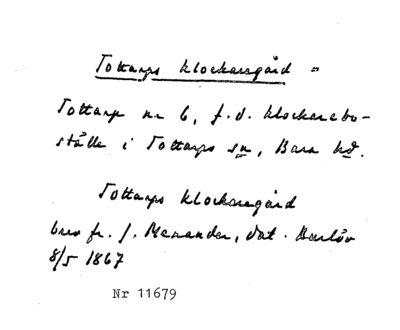 Tottarps klockaregård =
Tottarp nr 6, f.d. klockarebo-
ställe i Tottarps sn, Bara hd.
Tottarps klockaregård
brev fr. J. Menander, dat. Burlöv
8/5 1867
Nr 11679